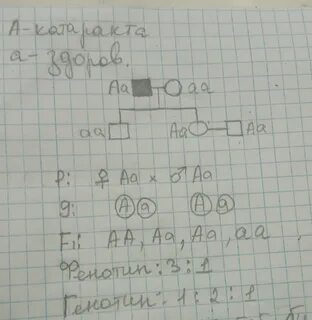 А-катаракта
а-здоров.
Аа аа
аа Аа Аа
P: ♀ Аа × ♂ Аа
g: А а А а
F₁: АА, Аа, Аа, аа.
Фенотип: 3 : 1
Генотип: 1 : 2 : 1